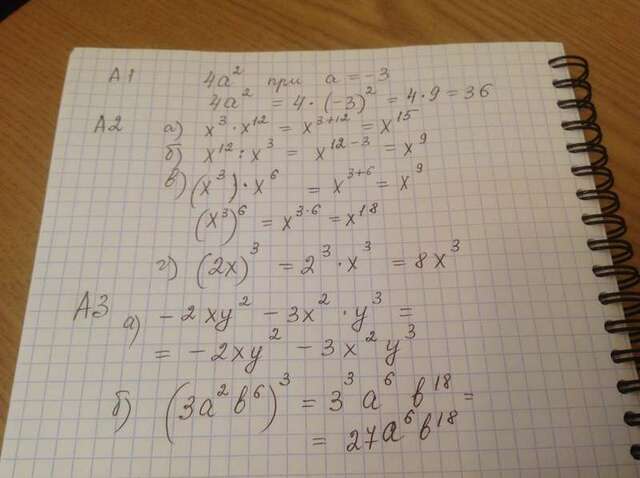 A1 4a² при a = -3
4a² = 4 · (-3)² = 4 · 9 = 36
A2 а) x³ · x¹² = x³⁺¹² = x¹⁵
б) x¹² : x³ = x¹²⁻³ = x⁹
в) (x³) · x⁶ = x³⁺⁶ = x⁹
(x³)⁶ = x³·⁶ = x¹⁸
г) (2x)³ = 2³ · x³ = 8x³
A3 а) -2xy² - 3x² · y³ =
= -2xy² - 3x²y³
б) (3a²b⁶)³ = 3³a⁶ b¹⁸ =
= 27a⁶b¹⁸